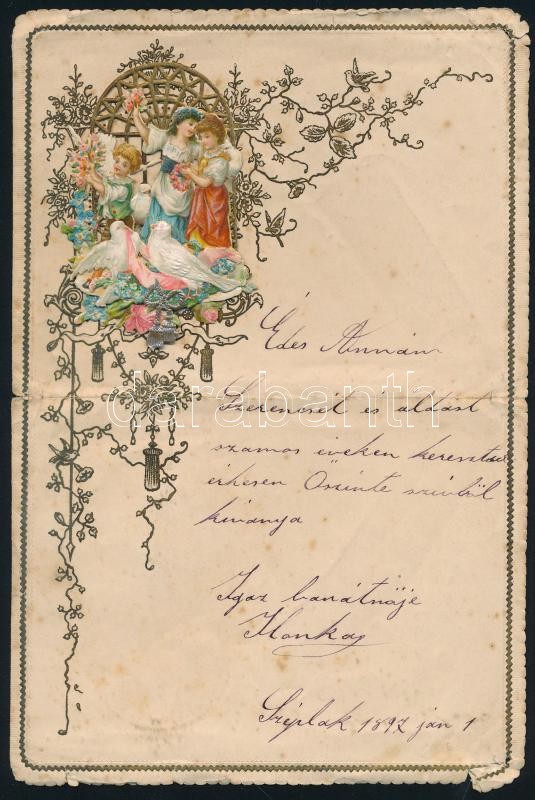 Édes Annám
Szerencsét és áldást
darabanth
számos éveken keresztül
érhesen Őszinte szivből
kiványa
Igaz barátnője
Ilonka
Széplak 1897 jan 1